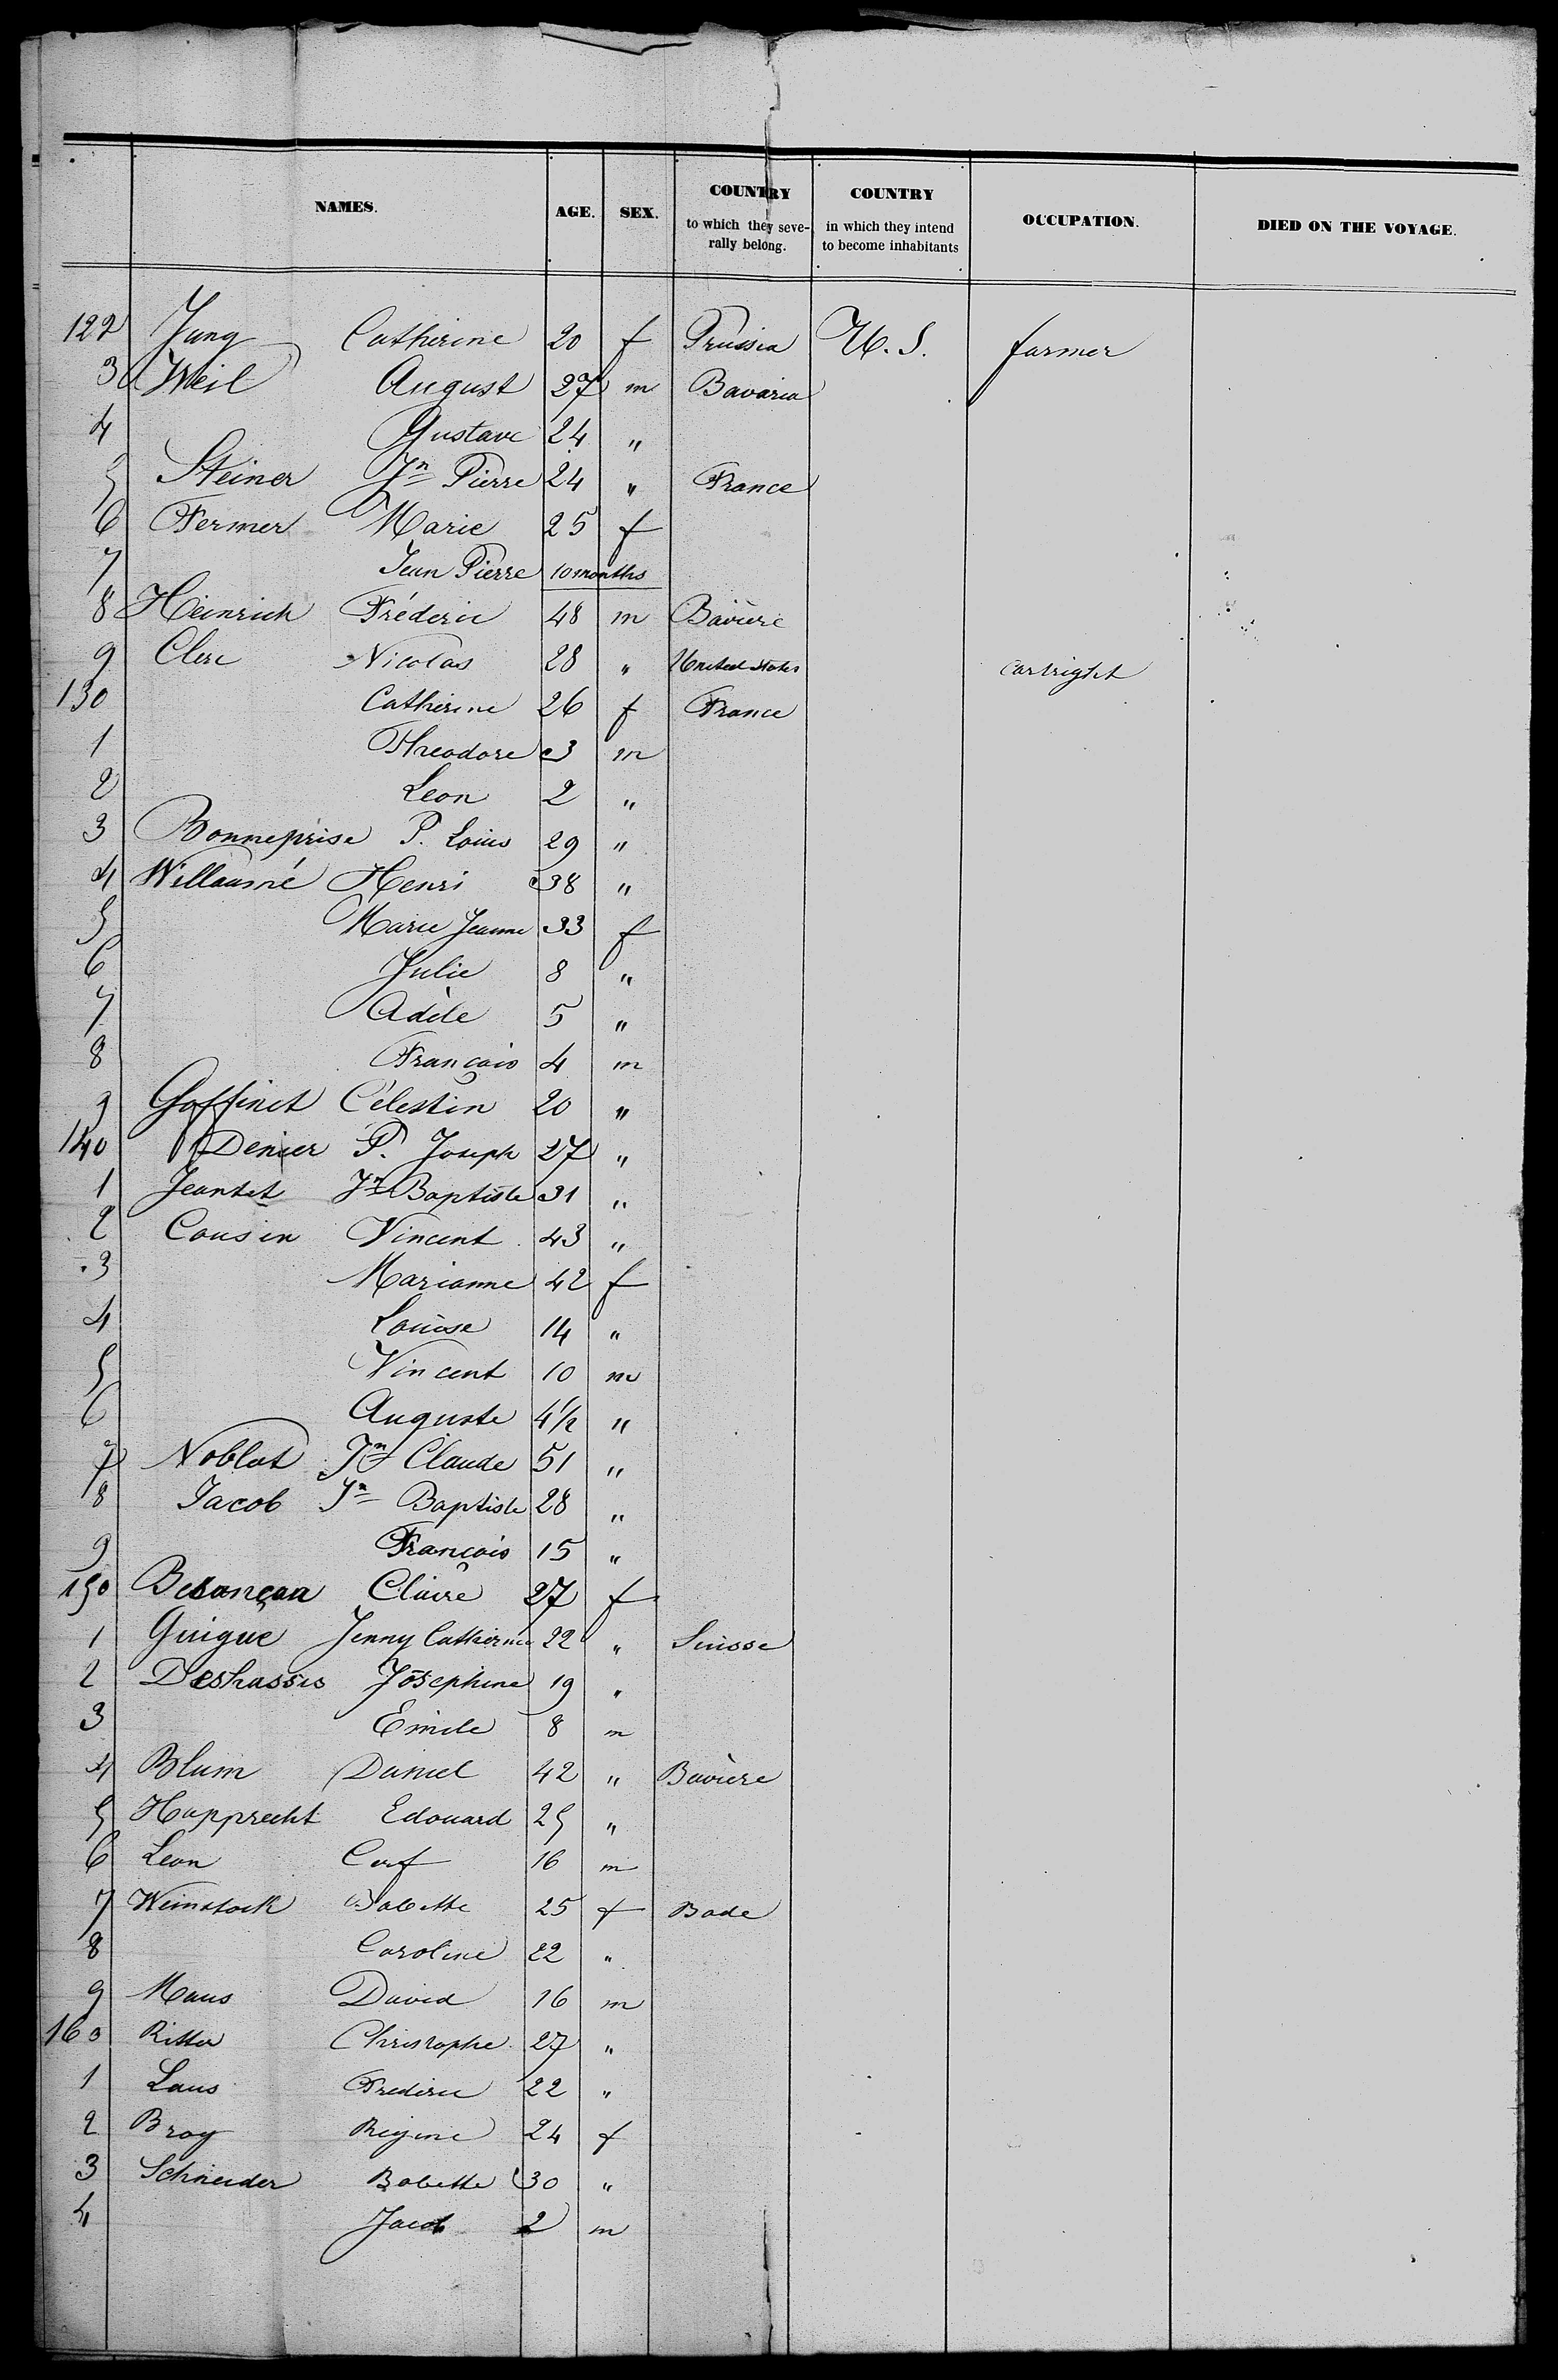 NAMES. AGE. SEX. COUNTRY to which they seve-rally belong. COUNTRY in which they intend to become inhabitants OCCUPATION. DIED ON THE VOYAGE.
122 Jung Catherine 20 f Prussia U.S. farmer
3 Weil August 27 m Bavaria
4 Gustave 24 "
5 Steiner Jn Pierre 24 " France
6 Fermer Marie 25 f
7 Jean Pierre 10 months
8 Heinrich Fréderic 48 m Bavière
9 Clerc Nicolas 28 " United States cartright
130 Catherine 26 f France
1 Theodore 3 m
2 Leon 2 "
3 Bonneprise P. Louis 29 "
4 Willaumé Henri 38 "
5 Marie Jeanne 33 f
6 Julie 8 "
7 Adèle 5 "
8 François 4 m
9 Goffinet Célestin 20 "
140 Denier P. Joseph 27 "
1 Jeantet Jn Baptiste 31 "
2 Cousin Vincent 43 "
3 Marianne 42 f
4 Louise 14 "
5 Vincent 10 m
6 Auguste 4 1/2 "
7 Noblat Jn Claude 51 "
8 Jacob Jn Baptiste 28 "
9 François 15 "
150 Besançon Claire 27 f
1 Guigue Jenny Catherine 22 " Suisse
2 Deshassis Josephine 19 "
3 Emile 8 m
4 Blum Daniel 42 " Bavière
5 Hupprecht Edouard 25 "
6 Leon Cerf 16 m
7 Weinstock Babette 25 f Bade
8 Caroline 22 "
9 Maus David 16 m
160 Ritter Christophe 27 "
1 Laus Frederic 22 "
2 Broy Regine 24 f
3 Schneider Babette 30 "
4 Jacob 2 m